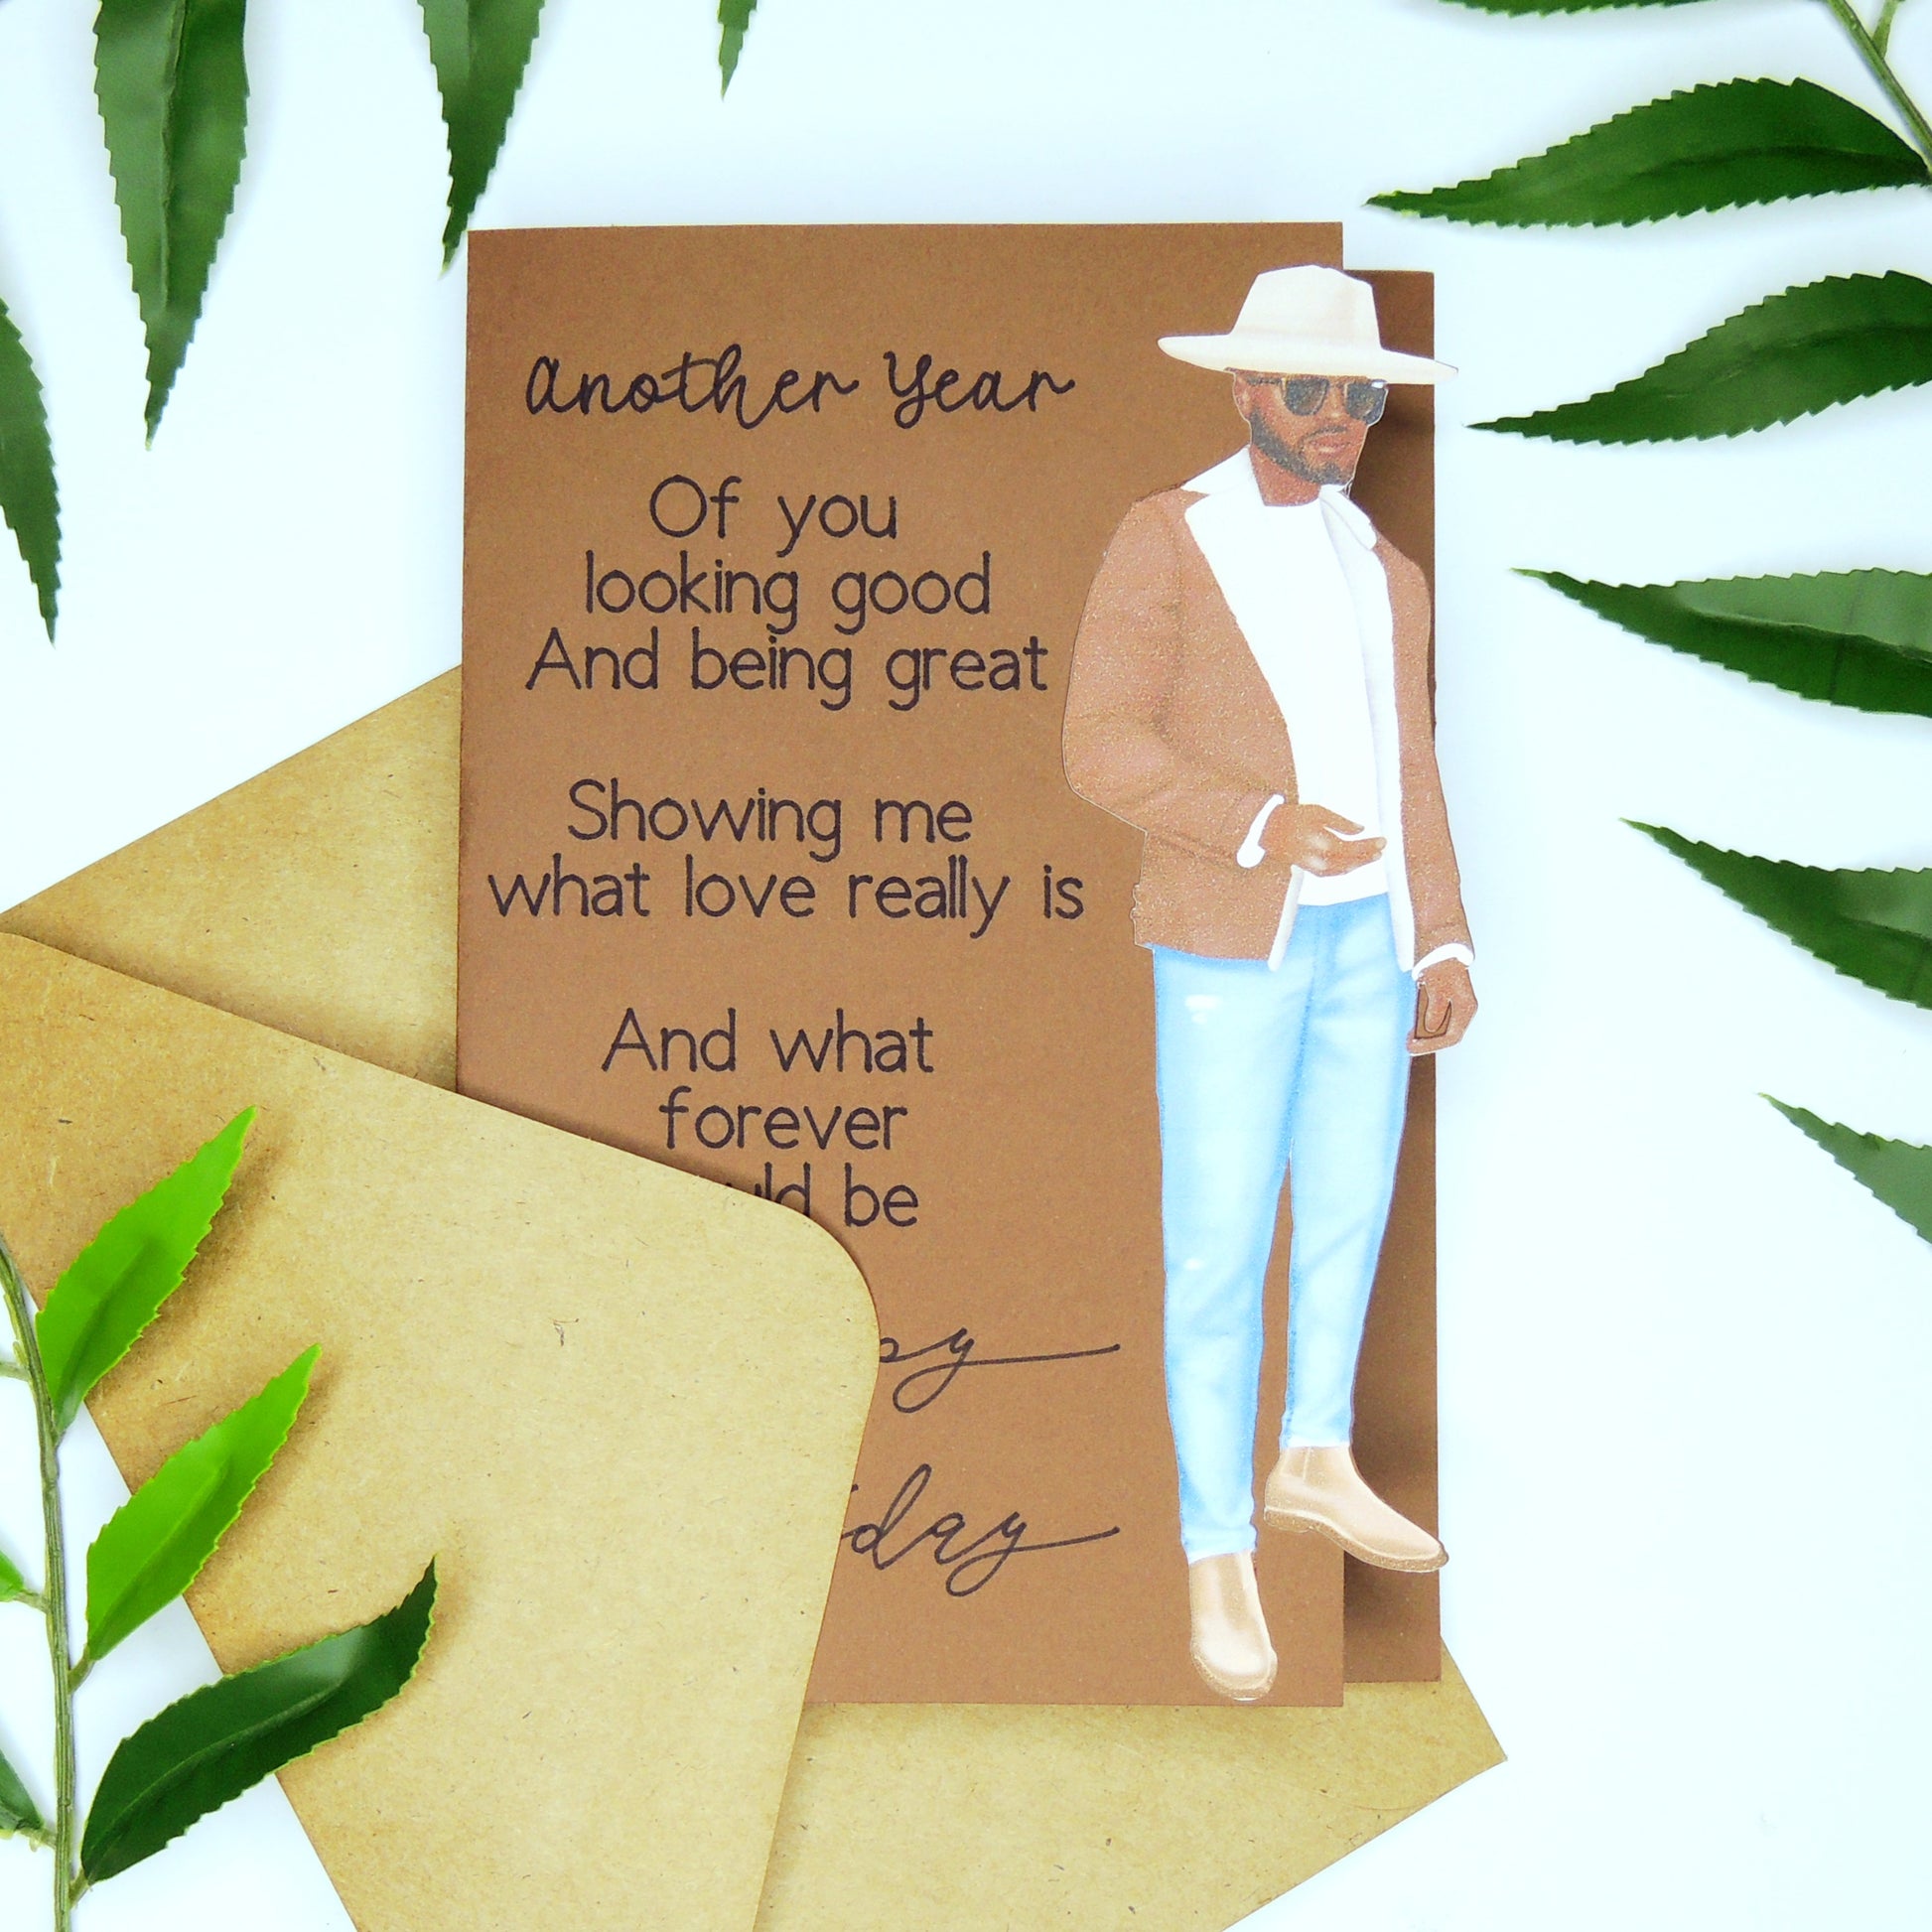 Another Year
Of you
looking good
And being great
Showing me
what love really is
And what
forever
be